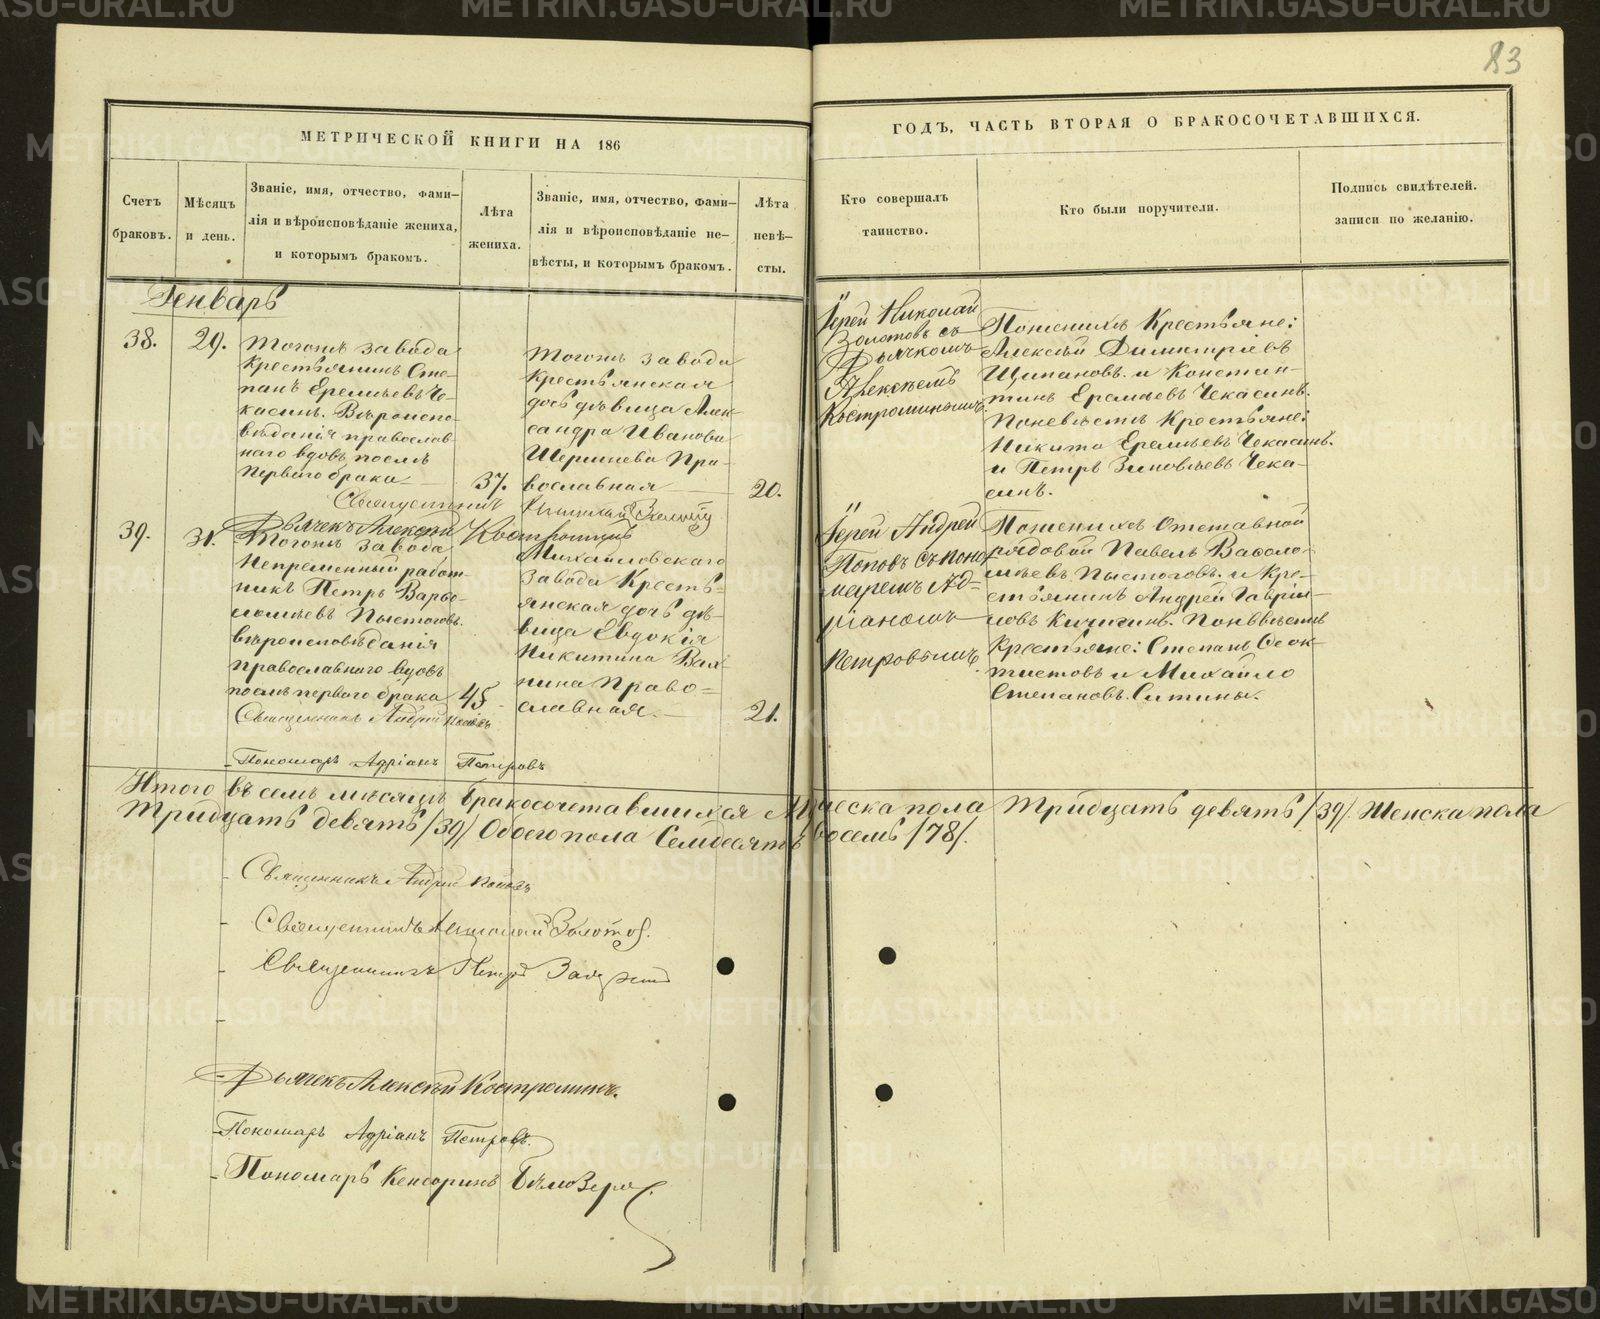 83
МЕТРИЧЕСКОЙ КНИГИ НА 186
ГОДЪ, ЧАСТЬ ВТОРАЯ О БРАКОСОЧЕТАВШИХСЯ.
Счетъ
браковъ.
Мѣсяцъ
и день.
Званіе, имя, отчество, фами-
лія и вѣроисповѣданіе жениха,
и которымъ бракомъ.
Лѣта
жениха.
Званіе, имя, отчество, фами-
лія и вѣроисповѣданіе не-
вѣсты, и которымъ бракомъ.
Лѣта
невѣ-
сты.
Кто совершалъ
таинство.
Кто были поручители.
Подпись свидѣтелей.
записи по желанію.
Генварь
38.
29.
Тогожъ завода
Крестьянинъ Сте-
панъ Еремѣевъ Че-
касинъ. Вѣроиспо-
вѣданія православ-
наго вдовъ послѣ
перваго брака
37.
Тогожъ завода
Крестьянская
дочь дѣвица Алек-
сандра Иванова
Шерстнева Пра-
вославная
20.
Іерей Николай
Золотовъ съ
Дьячкомъ
Алексѣемъ
Костроминымъ.
Поженихѣ Крестьяне:
Алексѣй Димитріевъ
Щипановъ. и Констан-
тинъ Еремѣевъ Чекасинъ.
Поневѣстѣ Крестьяне:
Никита Еремѣевъ Чекасинъ.
и Петръ Зиновьевъ Чека-
синъ.
Священникъ Николай Золотовъ
Дьячекъ Алексѣй Костроминъ
39.
31.
Тогожъ завода
Непременный работ-
никъ Петръ Варѳо-
ломѣевъ Пыстоговъ.
вѣроисповѣданія
православнаго вдовъ
послѣ перваго брака
45
Михайловскаго
завода Кресть-
янская дочь дѣ-
вица Евдокія
Никитина
Право-
славная.
21.
Іерей Андрей
Поповъ съ Поно-
маремъ Ад-
ріаномъ
Петровымъ.
Поженихѣ Отставной
рядовой Павелъ Варѳоло-
мѣевъ Пыстоговъ. и Кре-
стьянинъ Андрей Гаврии-
ловъ Кичигинъ. Поневѣстѣ
Крестьяне: Степанъ Ѳеок-
тистовъ и Михайло
Степановъ. Ситины.
Священникъ Андрей Поповъ
Пономарь Адріанъ Петровъ
Итого въ семъ мѣсяцѣ бракосочетавшихся Мужеска пола Тридцать девять /39/. Женска пола
Тридцать девять /39/ Обоего пола Семьдесятъ восемь /78/.
Священникъ Андрей Поповъ
Священникъ Николай Золотовъ.
Священникъ Петръ
Дьячекъ Алексѣй Костроминъ.
Пономарь Адріанъ Петровъ.
Пономарь Кенсоринъ Бѣлозеровъ.
METRIKI.GASO-URAL.RU